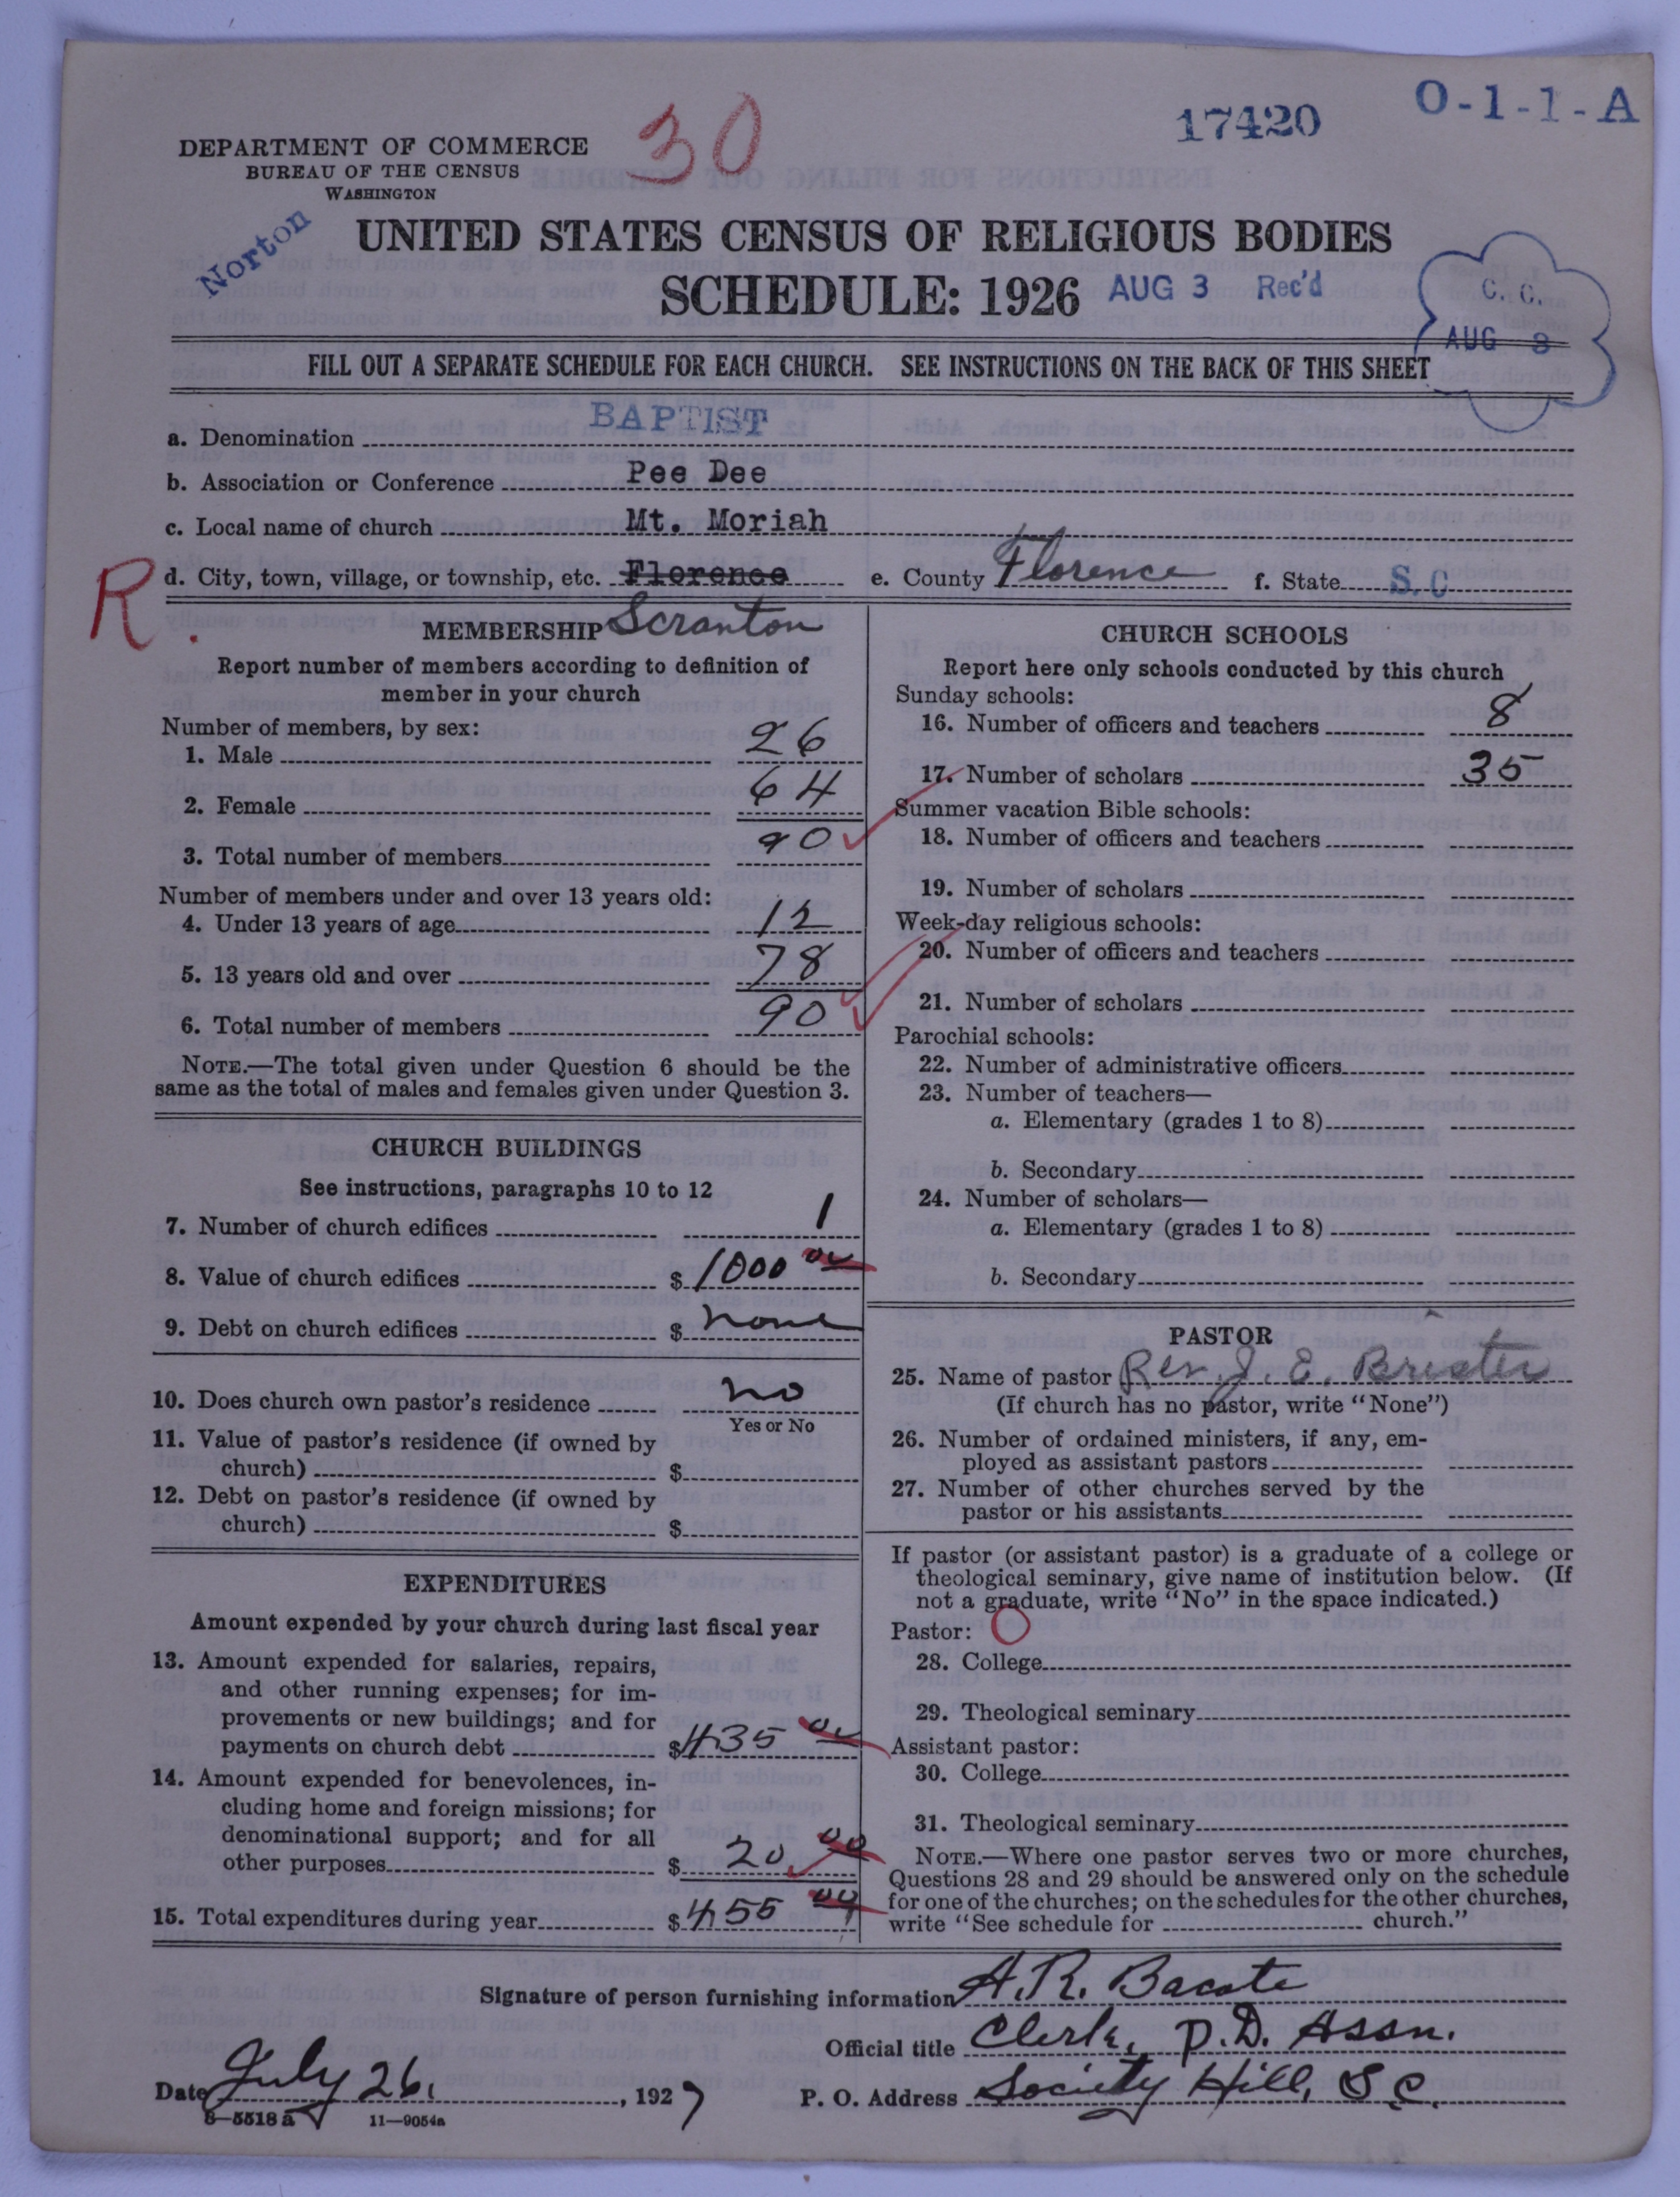 30
17420
O-1-1-A
DEPARTMENT OF COMMERCE
BUREAU OF THE CENSUS
WASHINGTON
Norton
UNITED STATES CENSUS OF RELIGIOUS BODIES
SCHEDULE: 1926
AUG 3 Rec'd
C. C.
AUG 8
FILL OUT A SEPARATE SCHEDULE FOR EACH CHURCH. SEE INSTRUCTIONS ON THE BACK OF THIS SHEET
a. Denomination BAPTIST
b. Association or Conference Pee Dee
c. Local name of church Mt. Moriah
R.
d. City, town, village, or township, etc. Florence e. County Florence f. State S.C
Scranton
MEMBERSHIP
Report number of members according to definition of
member in your church
Number of members, by sex:
1. Male 26
2. Female 64
3. Total number of members 90
Number of members under and over 13 years old:
4. Under 13 years of age 12
5. 13 years old and over 78
6. Total number of members 90
NOTE.—The total given under Question 6 should be the
same as the total of males and females given under Question 3.
CHURCH BUILDINGS
See instructions, paragraphs 10 to 12
7. Number of church edifices 1
8. Value of church edifices $ 1000 00
9. Debt on church edifices $ none
10. Does church own pastor's residence no
Yes or No
11. Value of pastor's residence (if owned by
church) $
12. Debt on pastor's residence (if owned by
church) $
EXPENDITURES
Amount expended by your church during last fiscal year
13. Amount expended for salaries, repairs,
and other running expenses; for im-
provements or new buildings; and for
payments on church debt $ 435 00
14. Amount expended for benevolences, in-
cluding home and foreign missions; for
denominational support; and for all
other purposes $ 20 00
15. Total expenditures during year $ 455 00
CHURCH SCHOOLS
Report here only schools conducted by this church
Sunday schools:
16. Number of officers and teachers 8
17. Number of scholars 35
Summer vacation Bible schools:
18. Number of officers and teachers
19. Number of scholars
Week-day religious schools:
20. Number of officers and teachers
21. Number of scholars
Parochial schools:
22. Number of administrative officers
23. Number of teachers—
a. Elementary (grades 1 to 8)
b. Secondary
24. Number of scholars—
a. Elementary (grades 1 to 8)
b. Secondary
PASTOR
25. Name of pastor Rev. J. E.
(If church has no pastor, write "None")
26. Number of ordained ministers, if any, em-
ployed as assistant pastors
27. Number of other churches served by the
pastor or his assistants
If pastor (or assistant pastor) is a graduate of a college or
theological seminary, give name of institution below. (If
not a graduate, write "No" in the space indicated.)
Pastor:
28. College
29. Theological seminary
Assistant pastor:
30. College
31. Theological seminary
NOTE.—Where one pastor serves two or more churches,
Questions 28 and 29 should be answered only on the schedule
for one of the churches; on the schedules for the other churches,
write "See schedule for church."
Signature of person furnishing information A. R. Bacote
Official title Clerk, P. D. Assn.
Date July 26, , 1927 P. O. Address Society Hill, S C.
8—5518 a 11—9054a